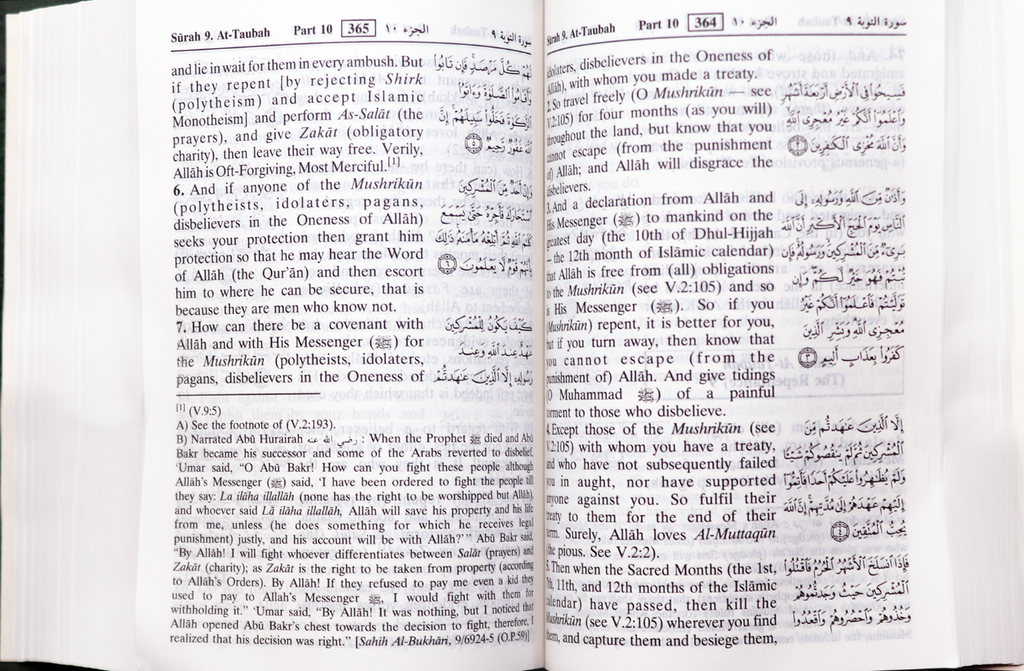 Sūrah 9. At-Taubah Part 10 364 الجزء ١٠ سورة التوبة ٩
idolaters, disbelievers in the Oneness of
Allāh), with whom you made a treaty.
2. So travel freely (O Mushrikūn — see
V.2:105) for four months (as you will)
throughout the land, but know that you
cannot escape (from the punishment
of) Allāh; and Allāh will disgrace the
disbelievers.
3. And a declaration from Allāh and
His Messenger (ﷺ) to mankind on the
greatest day (the 10th of Dhul-Hijjah
— the 12th month of Islāmic calendar)
that Allāh is free from (all) obligations
to the Mushrikūn (see V.2:105) and so
is His Messenger (ﷺ). So if you
(Mushrikūn) repent, it is better for you,
but if you turn away, then know that
you cannot escape (from the
punishment of) Allāh. And give tidings
(O Muhammad ﷺ) of a painful
torment to those who disbelieve.
4. Except those of the Mushrikūn (see
V.2:105) with whom you have a treaty,
and who have not subsequently failed
you in aught, nor have supported
anyone against you. So fulfil their
treaty to them for the end of their
term. Surely, Allāh loves Al-Muttaqūn
(the pious. See V.2:2).
5. Then when the Sacred Months (the 1st,
7th, 11th, and 12th months of the Islāmic
calendar) have passed, then kill the
Mushrikūn (see V.2:105) wherever you find
them, and capture them and besiege them,
فَسِيحُوا۟ فِى ٱلْأَرْضِ أَرْبَعَةَ أَشْهُرٍ
وَٱعْلَمُوٓا۟ أَنَّكُمْ غَيْرُ مُعْجِزِى ٱللَّهِ
وَأَنَّ ٱللَّهَ مُخْزِى ٱلْكَـٰفِرِينَ ٢
وَأَذَٰنٌ مِّنَ ٱللَّهِ وَرَسُولِهِۦٓ إِلَى
ٱلنَّاسِ يَوْمَ ٱلْحَجِّ ٱلْأَكْبَرِ أَنَّ ٱللَّهَ
بَرِىٓءٌ مِّنَ ٱلْمُشْرِكِينَ وَرَسُولُهُۥ فَإِن
تُبْتُمْ فَهُوَ خَيْرٌ لَّكُمْ وَإِن
تَوَلَّيْتُمْ فَٱعْلَمُوٓا۟ أَنَّكُمْ غَيْرُ
مُعْجِزِى ٱللَّهِ وَبَشِّرِ ٱلَّذِينَ
كَفَرُوا۟ بِعَذَابٍ أَلِيمٍ ٣
إِلَّا ٱلَّذِينَ عَـٰهَدتُّم مِّنَ
ٱلْمُشْرِكِينَ ثُمَّ لَمْ يَنقُصُوكُمْ شَيْـًٔا
وَلَمْ يُظَـٰهِرُوا۟ عَلَيْكُمْ أَحَدًا فَأَتِمُّوٓا۟
إِلَيْهِمْ عَهْدَهُمْ إِلَىٰ مُدَّتِهِمْ إِنَّ ٱللَّهَ
يُحِبُّ ٱلْمُتَّقِينَ ٤
فَإِذَا ٱنسَلَخَ ٱلْأَشْهُرُ ٱلْحُرُمُ فَٱقْتُلُوا۟
ٱلْمُشْرِكِينَ حَيْثُ وَجَدتُّمُوهُمْ
وَخُذُوهُمْ وَٱحْصُرُوهُمْ وَٱقْعُدُوا۟
Sūrah 9. At-Taubah Part 10 365 الجزء ١٠ سورة التوبة ٩
and lie in wait for them in every ambush. But
if they repent [by rejecting Shirk
(polytheism) and accept Islamic
Monotheism] and perform As-Salāt (the
prayers), and give Zakāt (obligatory
charity), then leave their way free. Verily,
Allāh is Oft-Forgiving, Most Merciful.[1]
6. And if anyone of the Mushrikūn
(polytheists, idolaters, pagans,
disbelievers in the Oneness of Allāh)
seeks your protection then grant him
protection so that he may hear the Word
of Allāh (the Qur'ān) and then escort
him to where he can be secure, that is
because they are men who know not.
7. How can there be a covenant with
Allāh and with His Messenger (ﷺ) for
the Mushrikūn (polytheists, idolaters,
pagans, disbelievers in the Oneness of
لَهُمْ كُلَّ مَرْصَدٍ فَإِن تَابُوا۟
وَأَقَامُوا۟ ٱلصَّلَوٰةَ وَءَاتَوُا۟
ٱلزَّكَوٰةَ فَخَلُّوا۟ سَبِيلَهُمْ إِنَّ
ٱللَّهَ غَفُورٌ رَّحِيمٌ ٥
وَإِنْ أَحَدٌ مِّنَ ٱلْمُشْرِكِينَ
ٱسْتَجَارَكَ فَأَجِرْهُ حَتَّىٰ يَسْمَعَ
كَلَـٰمَ ٱللَّهِ ثُمَّ أَبْلِغْهُ مَأْمَنَهُۥ ذَٰلِكَ
بِأَنَّهُمْ قَوْمٌ لَّا يَعْلَمُونَ ٦
كَيْفَ يَكُونُ لِلْمُشْرِكِينَ
عَهْدٌ عِندَ ٱللَّهِ وَعِندَ
رَسُولِهِۦٓ إِلَّا ٱلَّذِينَ عَـٰهَدتُّمْ
[1] (V.9:5)
A) See the footnote of (V.2:193).
B) Narrated Abū Hurairah رضي الله عنه : When the Prophet ﷺ died and Abū
Bakr became his successor and some of the Arabs reverted to disbelief,
'Umar said, "O Abū Bakr! How can you fight these people although
Allāh's Messenger (ﷺ) said, 'I have been ordered to fight the people till
they say: La ilāha illallāh (none has the right to be worshipped but Allāh),
and whoever said Lā ilāha illallāh, Allāh will save his property and his life
from me, unless (he does something for which he receives legal
punishment) justly, and his account will be with Allāh?'" Abū Bakr said,
"By Allāh! I will fight whoever differentiates between Salāt (prayers) and
Zakāt (charity); as Zakāt is the right to be taken from property (according
to Allāh's Orders). By Allāh! If they refused to pay me even a kid they
used to pay to Allah's Messenger ﷺ, I would fight with them for
withholding it." 'Umar said, "By Allāh! It was nothing, but I noticed that
Allāh opened Abū Bakr's chest towards the decision to fight, therefore, I
realized that his decision was right." [Sahih Al-Bukhāri, 9/6924-5 (O.P.59)]